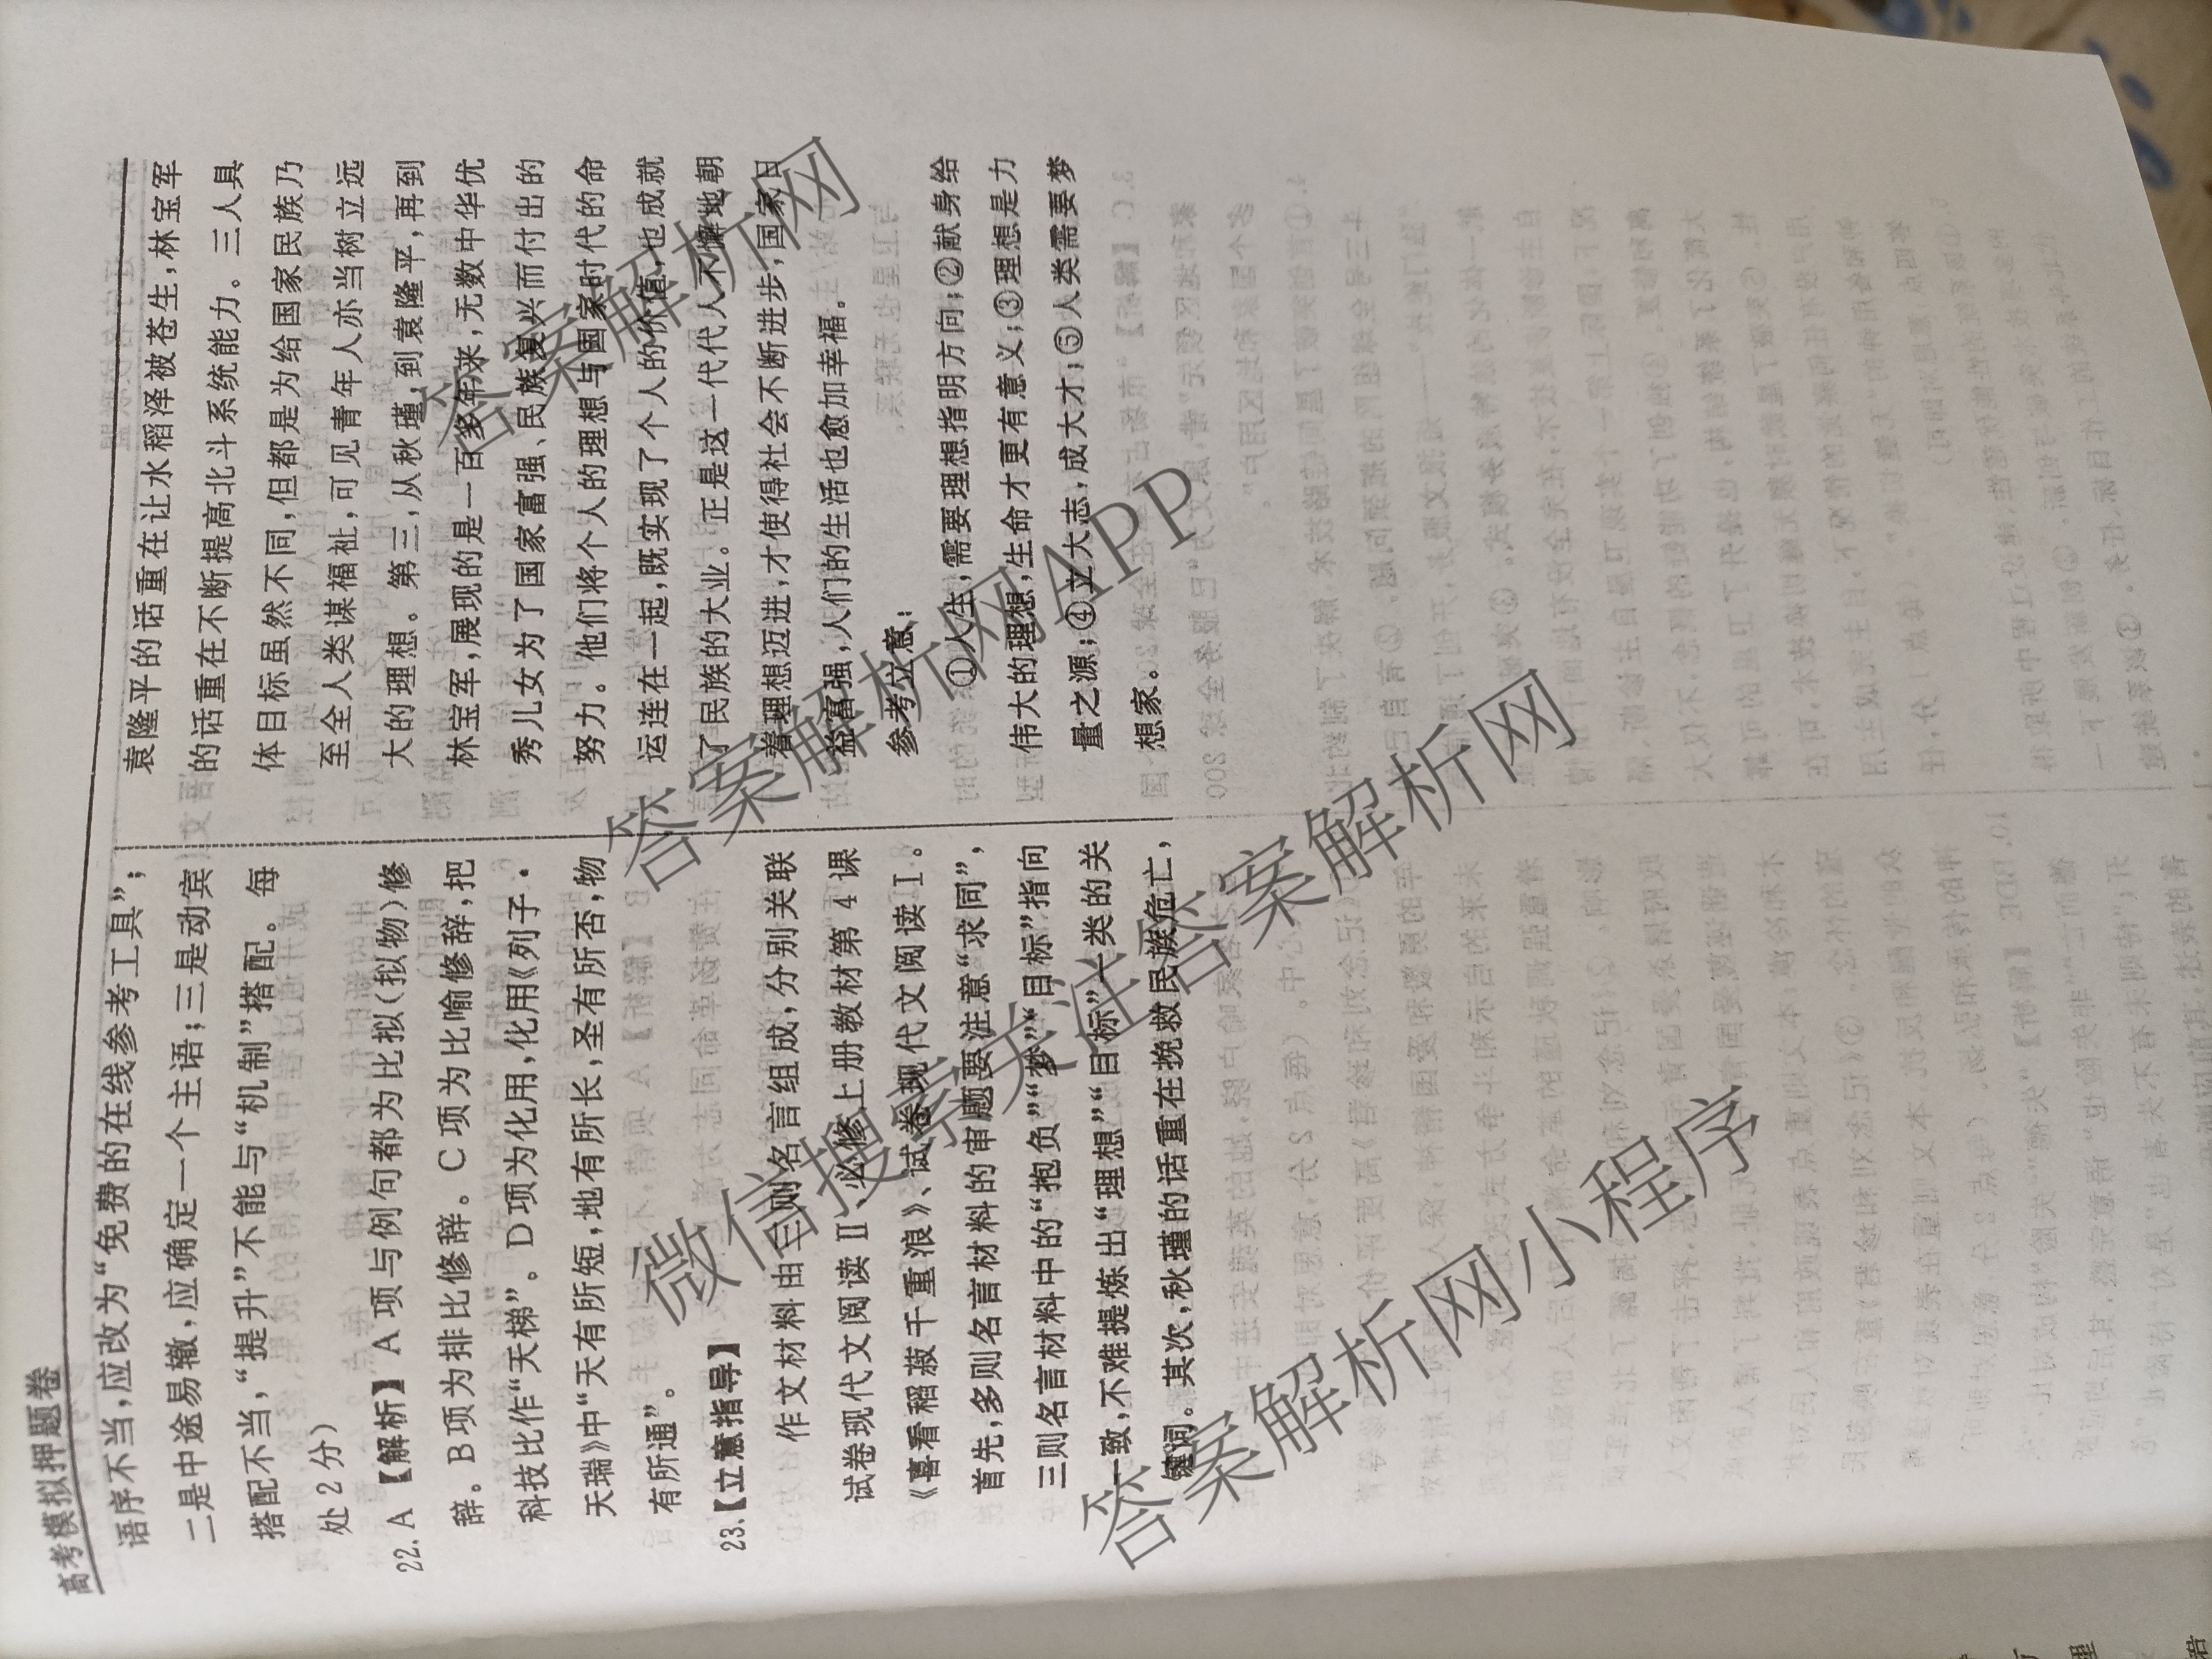 高考模拟押题卷
语序不当,应改为“免费的在线参考工具”;
二是中途易辙,应确定一个主语;三是动宾
搭配不当,“提升”不能与“机制”搭配。每
处2分)
22.A【解析】A项与例句都为比拟(拟物)修
辞。B项为排比修辞。C项为比喻修辞,把
科技比作“天梯”。D项为化用,化用《列子·
天瑞》中“天有所短,地有所长,圣有所否,物
有所通”。
23.【立意指导】
作文材料由三则名言组成,分别关联
试卷现代文阅读Ⅱ、必修上册教材第4课
《喜看稻菽千重浪》、试卷现代文阅读Ⅰ。
首先,多则名言材料的审题要注意“求同”,
三则名言材料中的“抱负”“梦”“目标”指向
一致,不难提炼出“理想”“目标”一类的关
键词。其次,秋瑾的话重在挽救民族危亡,
袁隆平的话重在让水稻泽被苍生,林宝军
的话重在不断提高北斗系统能力。三人具
体目标虽然不同,但都是为给国家民族乃
至全人类谋福祉,可见青年人亦当树立远
大的理想。第三,从秋瑾,到袁隆平,再到
林宝军,展现的是一百多年来,无数中华优
秀儿女为了国家富强、民族复兴而付出的
努力。他们将个人的理想与国家时代的命
运连在一起,既实现了个人的价值,也成就
了民族的大业。正是这一代代人不懈地朝
着理想迈进,才使得社会不断进步,国家日
益富强,人们的生活也愈加幸福。
参考立意:
①人生,需要理想指明方向;②献身给
伟大的理想,生命才更有意义;③理想是力
量之源;④立大志,成大才;⑤人类需要梦
想家。
答案解析网
答案解析网APP
微信搜索关注答案解析网
答案解析网小程序